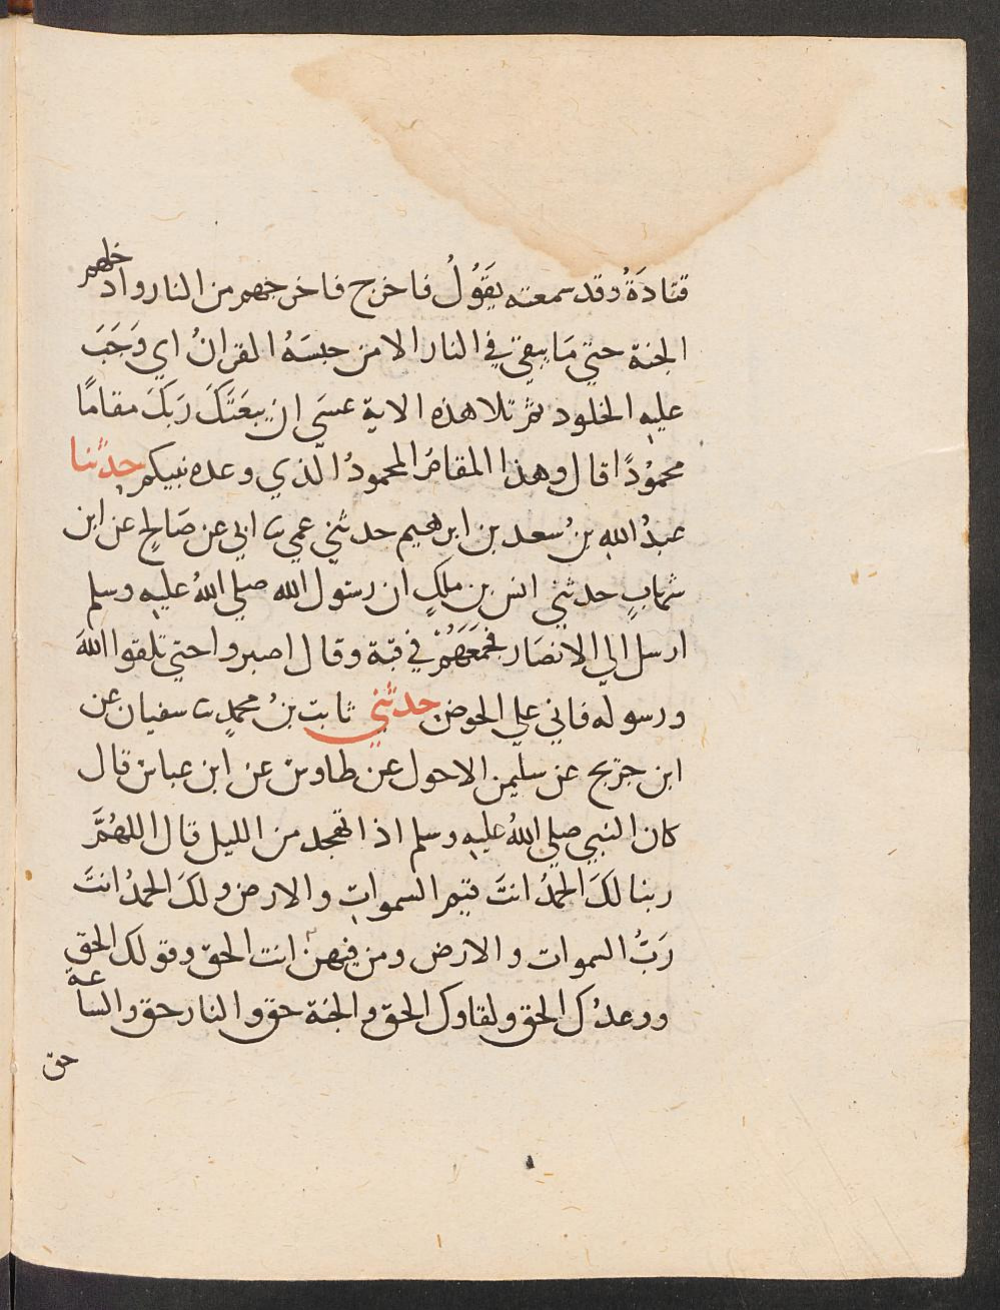 قتادَةُ وقد سمعته يقَوُلُ فاخرج فاخرجهم من النار وادخلهم
الجنة حتي مَا يبقي في النار الا من حبسَهُ القرانُ اي وَجَبَ
عليه الخلود ثم تلا هذه الاية عسَي ان يبعَثَكَ رَبكَ مقامًا
محمُودًا قال وهذا المقامُ المحمودُ الّذي وعده نبيكم حدثنا
عبدُ الله بنُ سعد بن ابرهيم حدثني عمي ثنا ابي عن صَالحٍ عن ابن
شهابٍ حدثني انس بن ملكٍ ان رسول الله صلي اللهُ عليه وسلم
ارسل الي الانصَار فجمَعَهُمْ في قبة وقال اصبروا حتي تلقوا اللهَ
ورسوله فاني علي الحوض حدثني ثابت بنُ محمدٍ ثنا سفيان عن
ابن جريج عن سليمن الاحول عن طاوس عن ابن عباس قال
كان النبي صلي اللهُ عليه وسلم اذا تهجد من الليل قال اللهُمَّ
ربنا لكَ الحمدُ انتَ قيم السمواتِ والارض ولكَ الحمدُ انتَ
رَبُّ السموات والارض ومن فيهن انت الحق وقولك الحق
ووعدُك الحق ولقاوك الحق والجنة حق والنار حق والساعة
حق